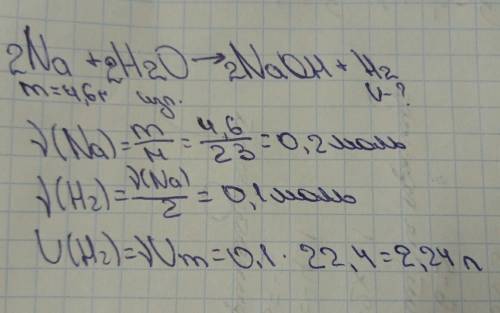 2Na + 2H2O → 2NaOH + H2
m=4,6г изб. V-?
ν(Na)=m/M=4,6/23=0,2моль
ν(H2)=ν(Na)/2=0,1моль
V(H2)=νVm=0,1·22,4=2,24л